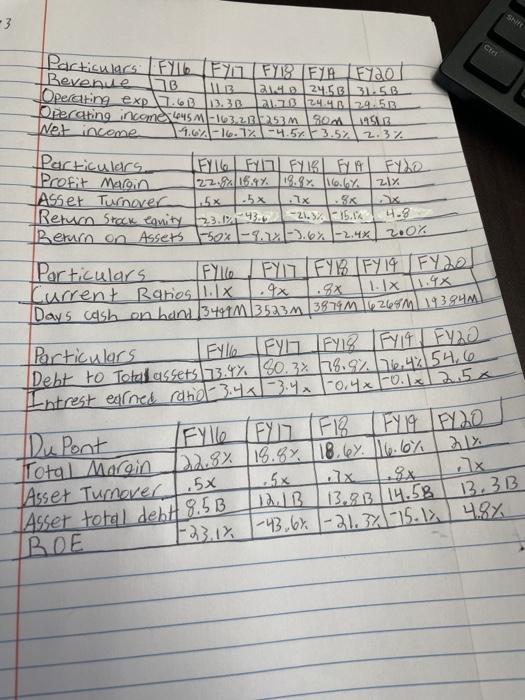 3
Particulars FY16 FY17 FY18 FY19 FY20
Revenue 7B 11B 21.4B 24.5B 31.5B
Operating exp 7.6B 13.3B 21.7B 24.4B 29.5B
Operating income -163.2B -253M 80M 1951B
Net income -9.6% -16.7% -4.5% -3.5% 2.3%
Particulars FY16 FY17 FY18 FY19 FY20
Profit Margin 22.8% 18.9% 18.8% 16.6% 21%
Asset Turnover .5x .5x .7x .8x .7x
Return Stock equity -23.1% -43.6 -21.3% -15.1% 4.8
Return on Assets -50% -9.7% -3.6% -2.4% 2.0%
Particulars FY16 FY17 FY18 FY19 FY20
Current Ratios 1.1x .9x .8x 1.1x 1.9x
Days cash on hand 3499M 3523M 3879M 6268M 19384M
Particulars FY16 FY17 FY18 FY19 FY20
Debt to Total assets 73.4% 80.3% 78.9% 76.4% 54.6
Intrest earned ratio -3.4x -3.4x -0.4x -0.1x 2.5x
Du Pont FY16 FY17 F18 FY19 FY20
Total Margin 22.8% 18.8% 18.6% 16.6% 21%
Asset Turnover .5x .5x .7x .8x .7x
Asset total debt 8.5B 12.1B 13.8B 14.5B 13.3B
ROE -23.1% -43.6% -21.3% -15.1% 4.8%
Shift
Ctrl